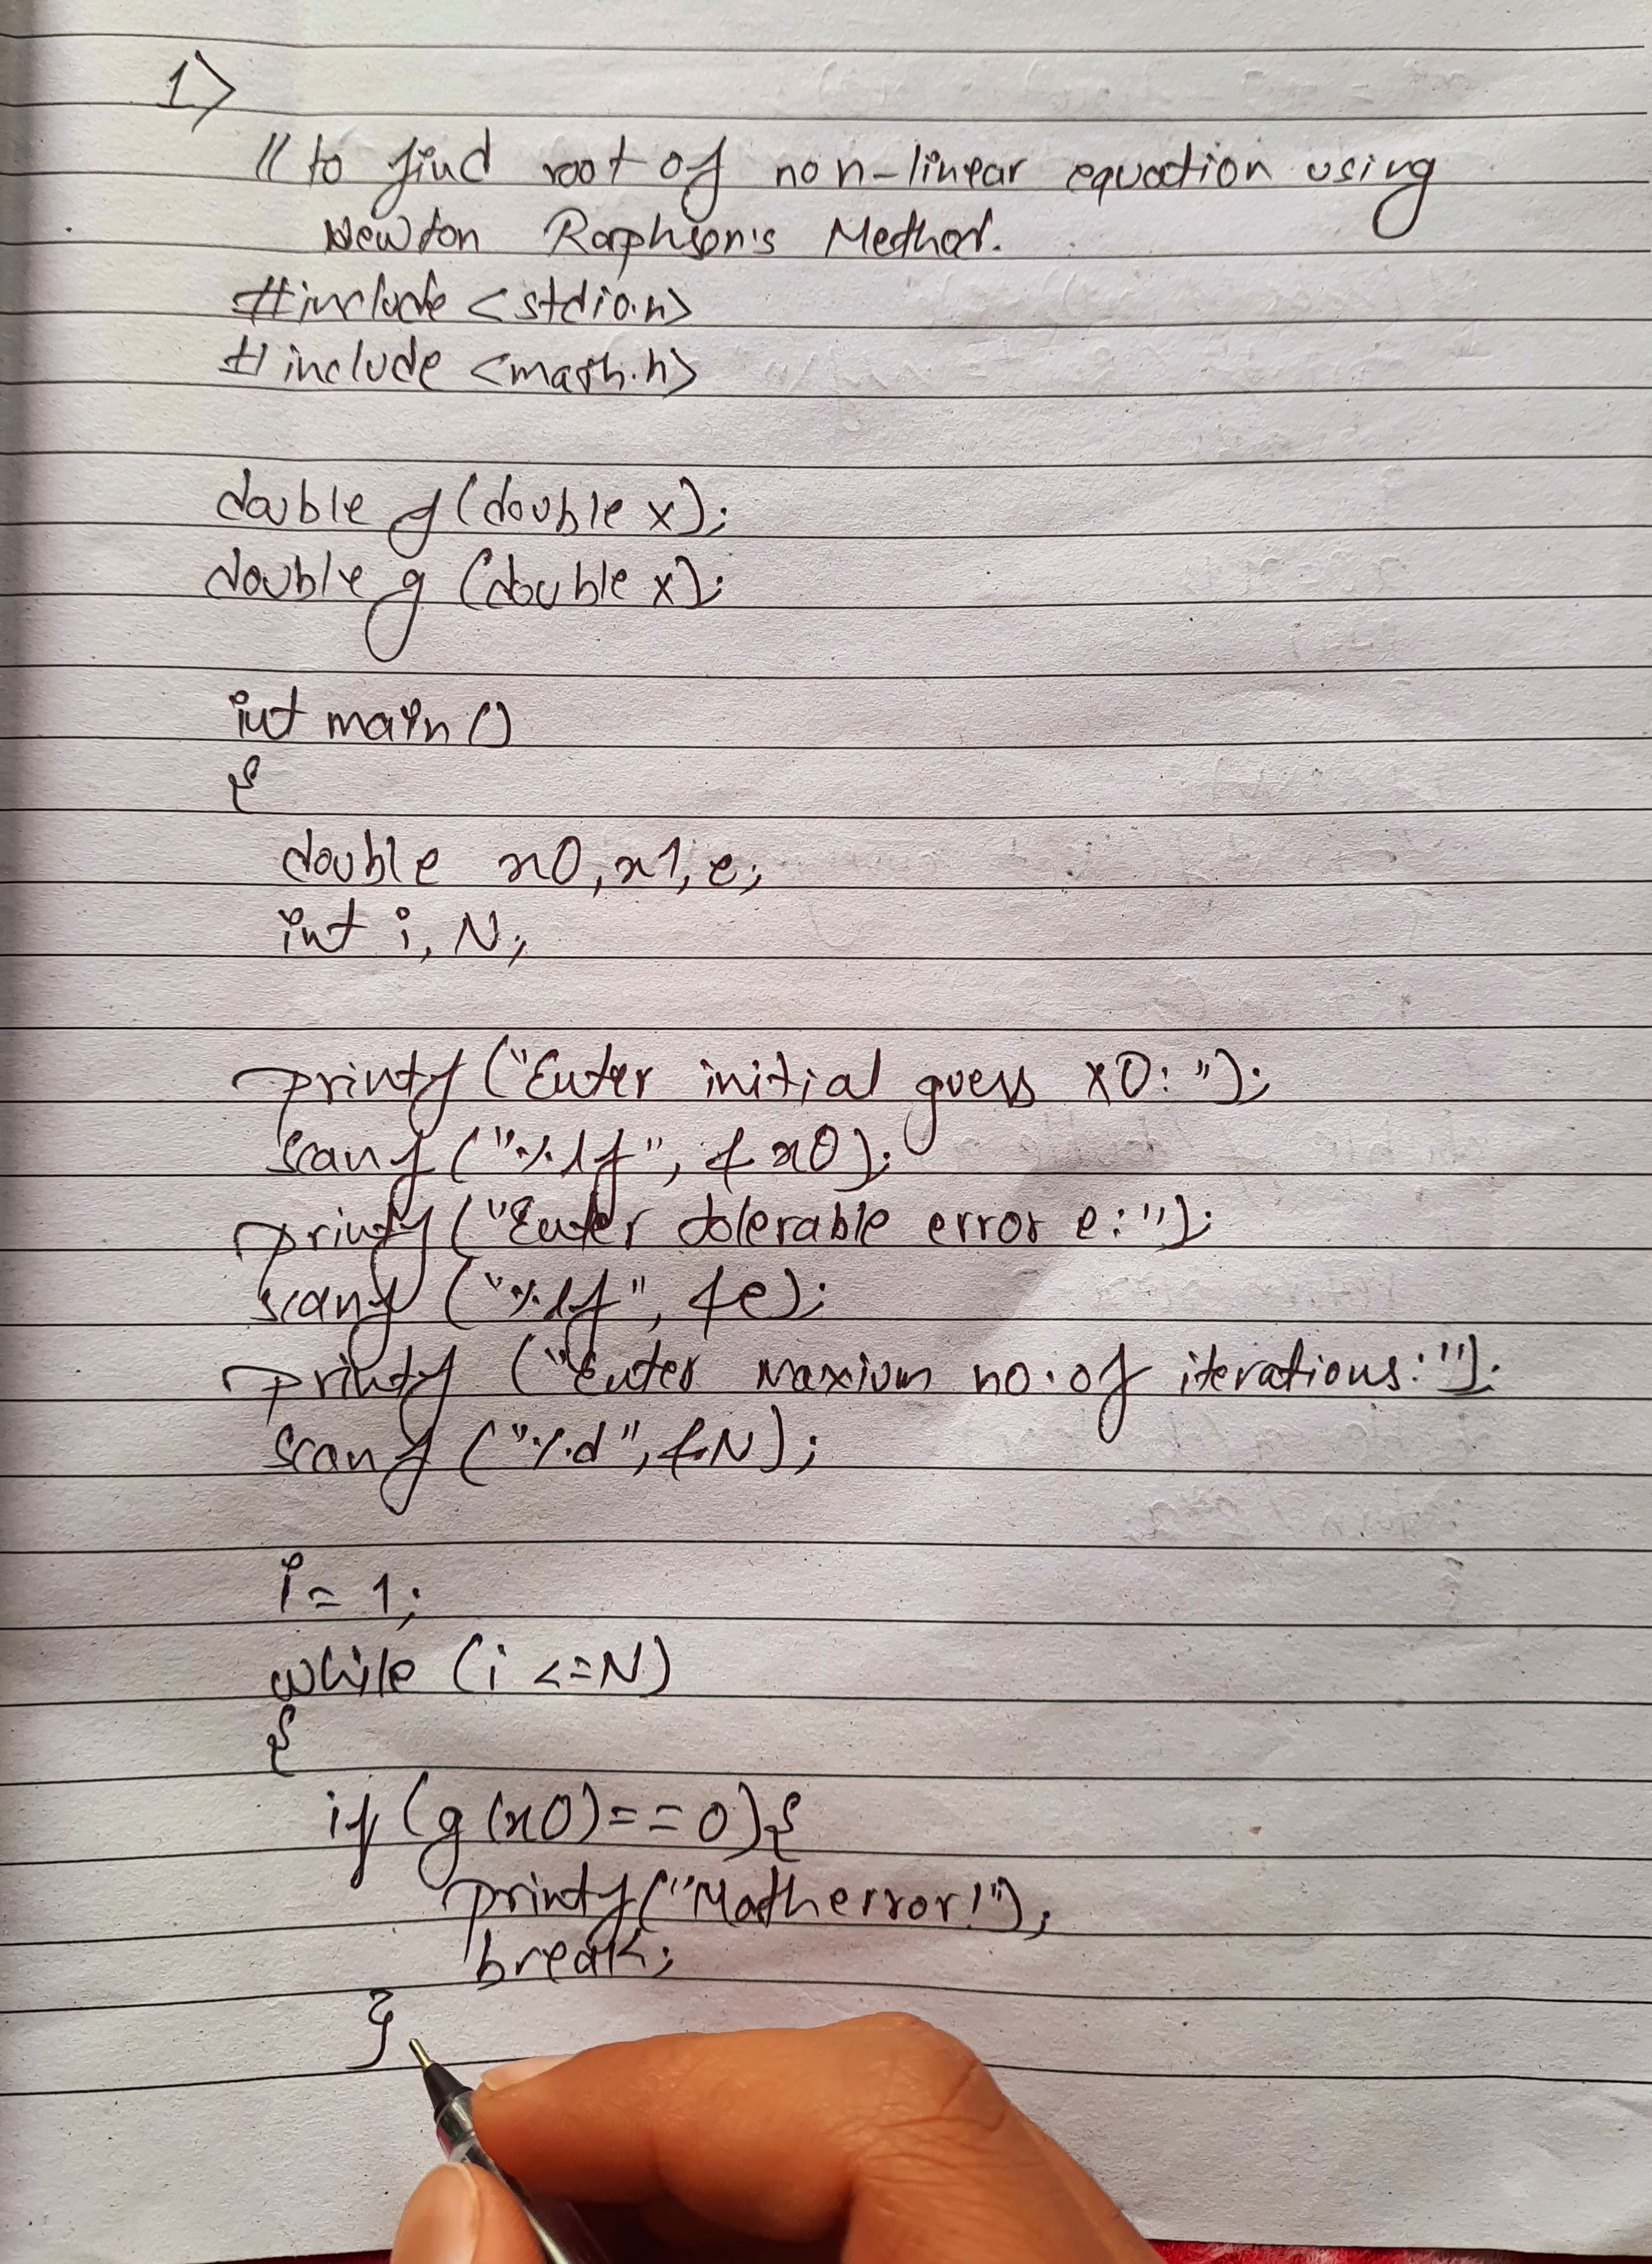 1>
// to find root of non-linear equation using
Newton Raphson's Method.
#include <stdio.h>
#include <math.h>
double f(double x);
double g (double x);
int main ()
{
double x0, x1, e;
int i, N;
printf ("Enter initial guess x0: ");
scanf ("%lf", &x0);
printf ("Enter tolerable error e:");
scanf ("%lf", &e);
printf ("Enter Maxium no. of iterations:");
scanf ("%d", &N);
i = 1;
while (i <=N)
{
if (g(x0)==0){
printf("Math error!");
break;
}